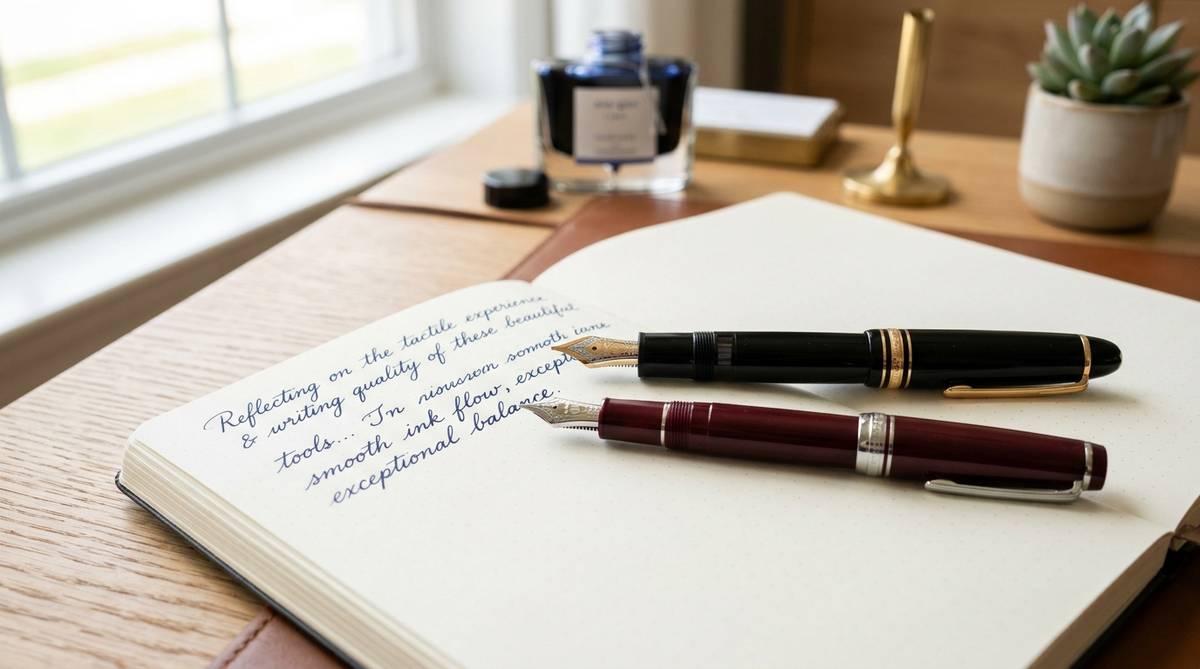 Reflecting on the tactile experience
& writing quality of these beautiful
tools... In smooth
smooth ink flow,
exceptional balance.